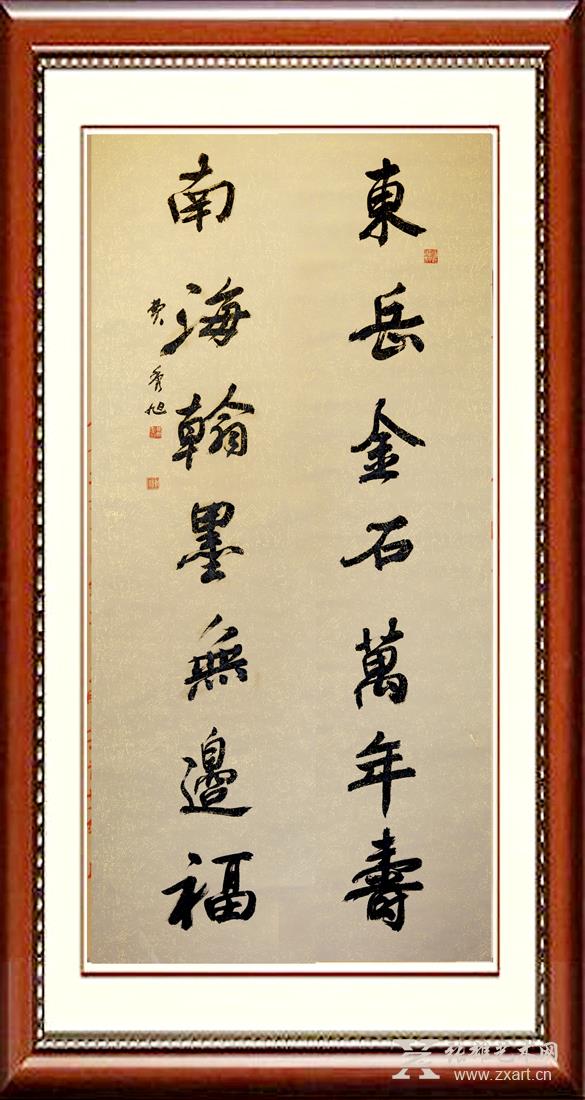 東岳金石萬年壽
南海翰墨無邊福
费秀旭
www.zxart.cn